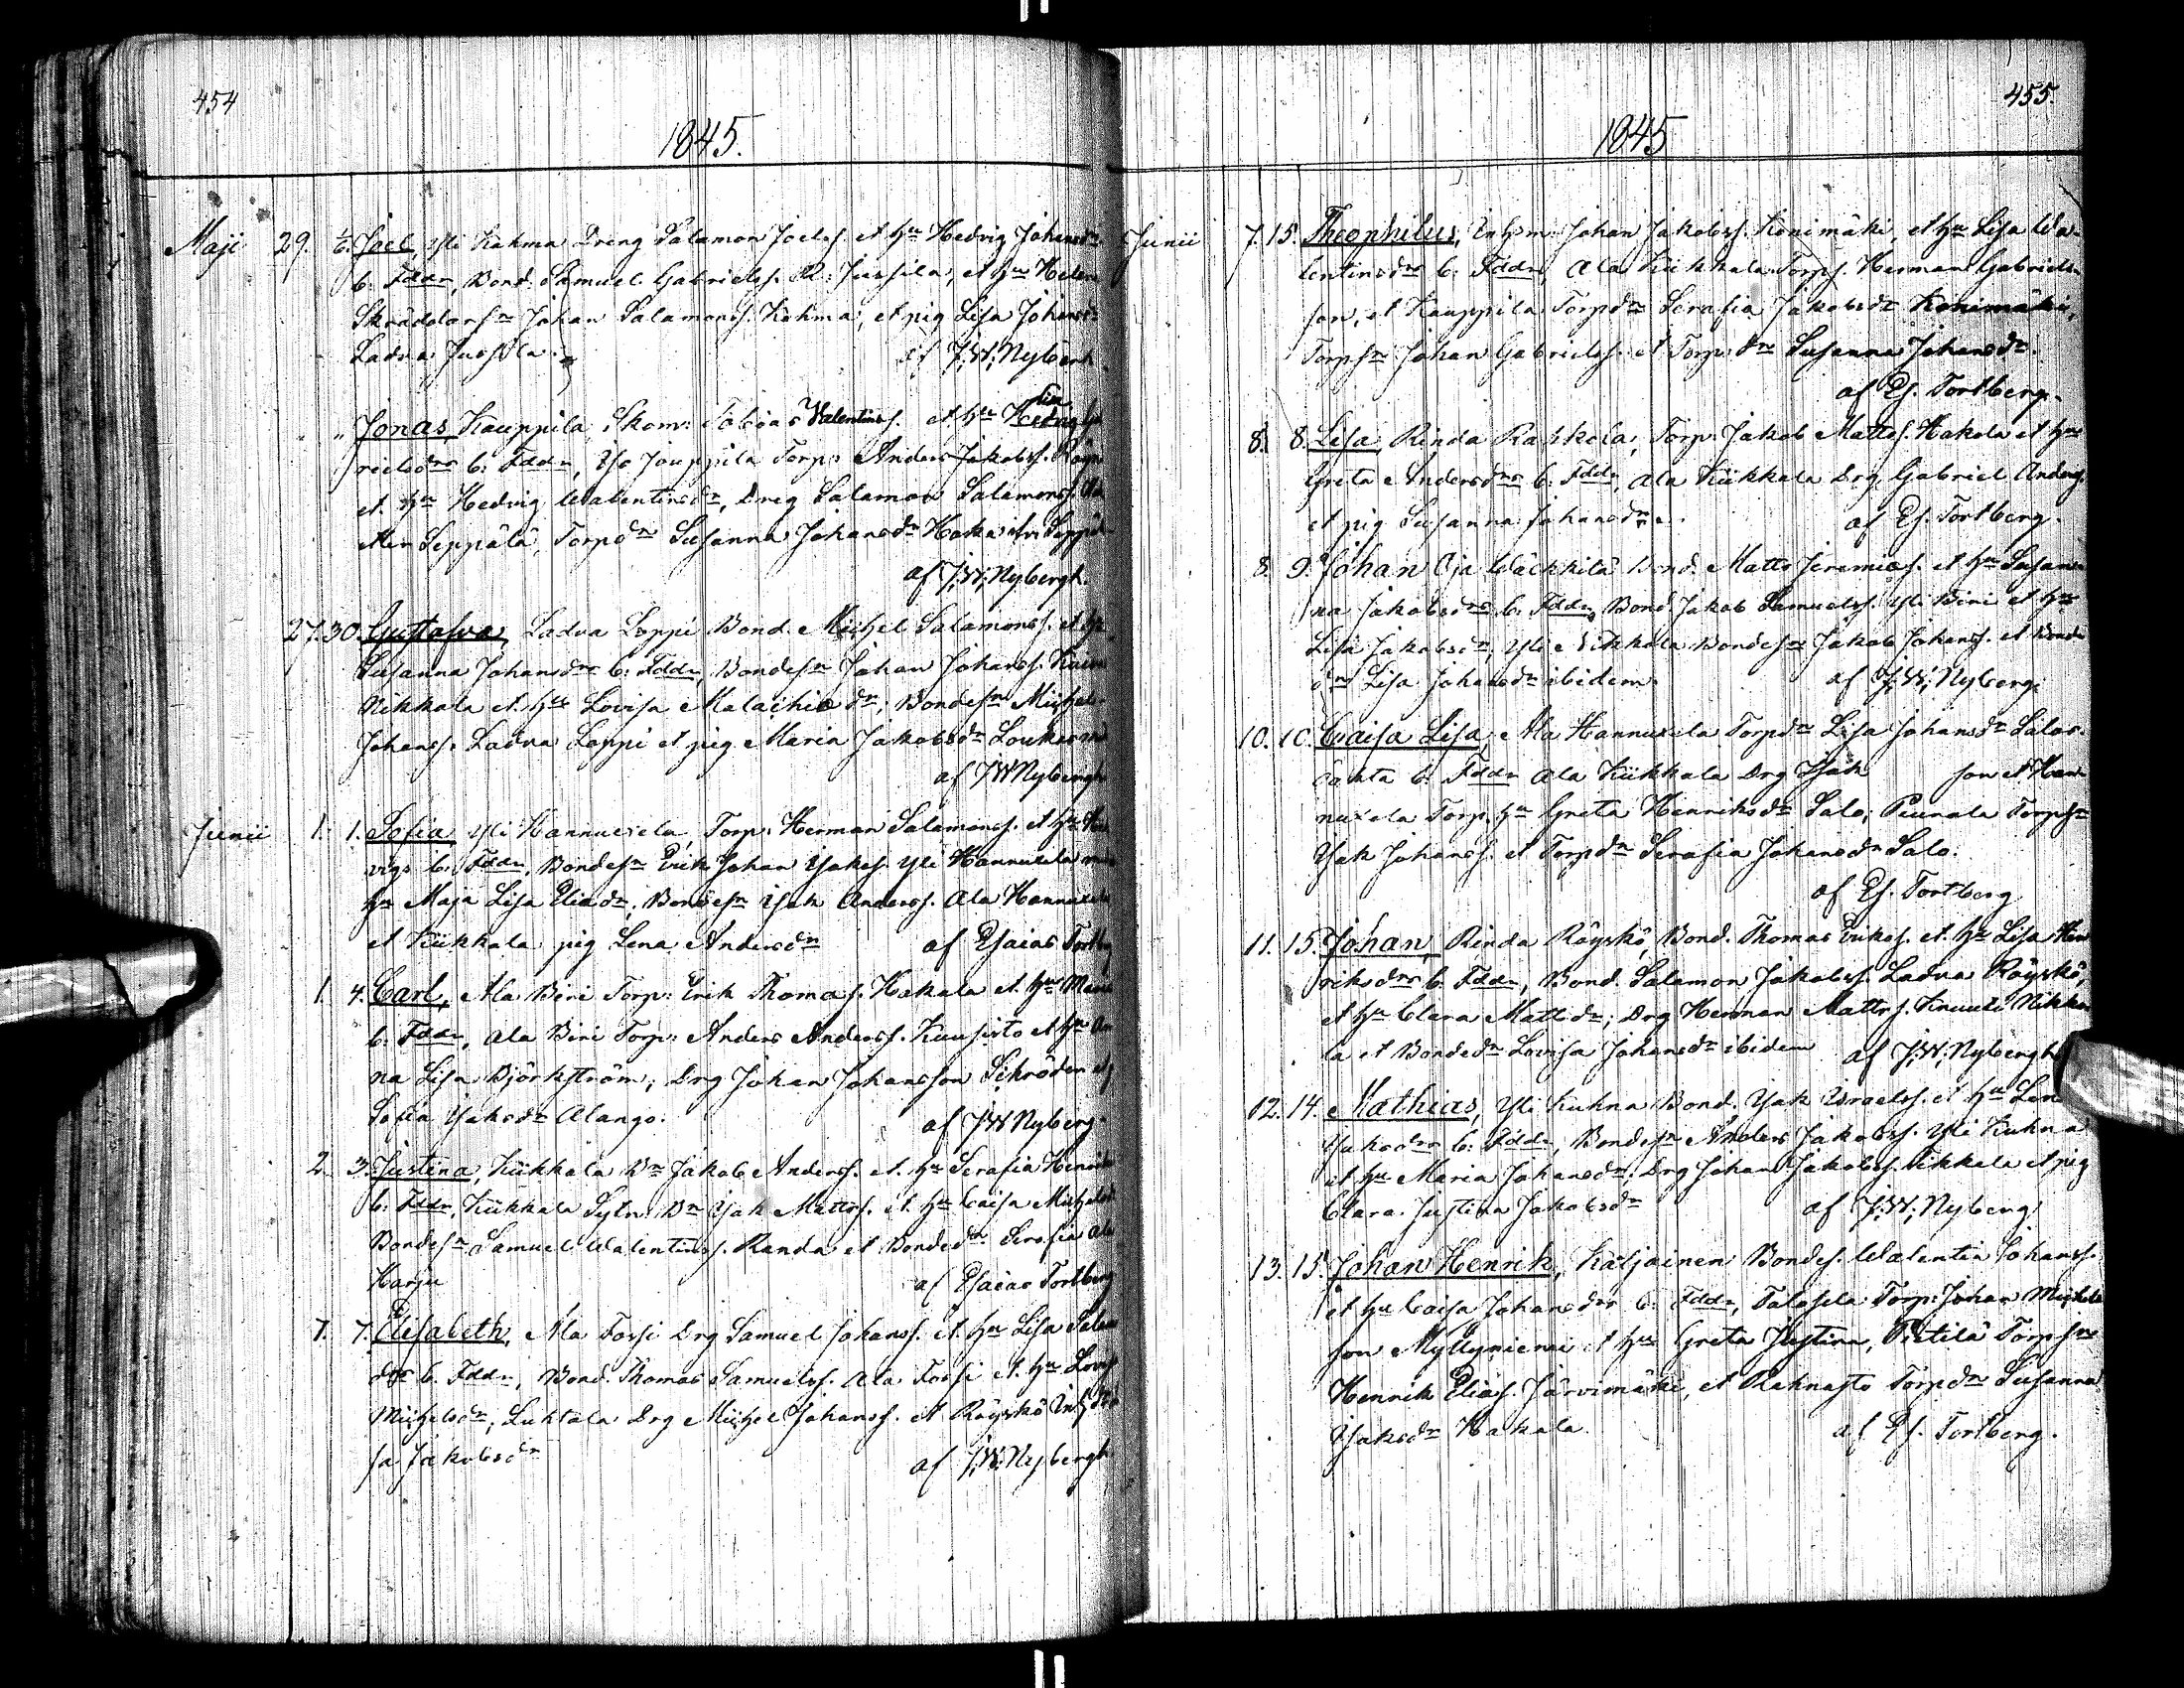 454
1845.
Maji 29. 1/6. Joel, Yli Kahma Dreng Salamon Joels. et hu Hedvig Johansdr
b: Fddr, Bond. Samuel Gabrielss. R: Jussila, et hu Helena
Skräddars n Johan Salamonss. Kahma, et pig Lisa Johansdr
Ladva Jussila. af J.W. Nybergh.
" " Jonas, Kauppila Skom: Tobias Valentinss. et hu Hedvig Ga
brielsdrs b: Fddr, Yso Jouppila Torp: Anders Jakobss. Röys
et hu Hedvig Walentinsdr, Dreg Salamon Salamonss.
Seppälä, Torpdr Susanna Johansdr Seppäl
af J.W. Nybergh.
27. 30. Gustafva, Ladva Loppi Bond. Michel Salamonss. et hu
Susanna Johansdrs b: Fddr, Bondesn Johan Johanss.
Nikkola et hu Lovisa Malachiædr, Bondesn Michel
Johanss. Ladva Loppi et pig Maria Jakobsdr
af J W Nybergh
Junii 1. 1. Sofia, Yli Hannuxela, Torp: Herman Salamonss. et hu Hed
vigs b: Fddr, Bondesn Erik Johan Ysaks. Yli Hannuxela
hu Maja Lisa Eliædr, Bondesn Ysak Anderss. Ala Hannuxela
et Kiikkala pig Lena Andersdr af Esaias Tortberg
1. 4. Carl, Ala Biri Torp: Erik Thomas. Hakala et hu Maria
b: Fddr, Ala Biri Torp: Anders Anderss. Kuusisto et hu An
na Lisa Björkström, Drg Johan Johansson Schroden et
Sofia Ysaksdr Alango. af J W Nyberg.
2. 3. Justina, Kiikkala Bn Jakob Anderss. et hu Serafia Henriks
b: Fddr, Kiikkala Bn Ysak Mattss. et hu Caisa Michelsd
Bondesn Samuel Walentinss. Randa et Bondedr Serafia Ala
Harju af Esaias Tortberg
7. 7. Elisabeth, Ala Fossi Drg Samuel Johanss. et hu Lisa Salam
drs b: Fddr, Bond. Thomas Samuelss. Ala Fossi et hu Lovis
Michelsdr, Luhtala Drg Michel Johanss. et Röyskö Inh
sa Jakobsdr af J.W. Nybergh
455.
1845
Junii 7. 15. Theophilus, Inhsm: Johan Jakobss. Konimäki, et hu Lisa Wa-
lentinsdrs b: Fddr, Ala Kiikkala Torps. Herman Gabriels-
son, et Kauppila Torpdr Serafia Jakobsdr Konimäki,
Torpsn Johan Gabrielss. et Torp: dr Susanna Johansdr.
af Es. Tortberg.
8. 8. Lisa, Rinda Rahkola, Torp: Jakob Mattss. Hakola et hu
Greta Andersdrs b: Fddr, Ala Kiikkala Drg Gabriel Anders.
et pig Susanna Johansdr. af Es. Tortberg.
8. 9. Johan Oja Wäckkilä Bond. Matts Jeremias. et hu Susan-
na Jakobsdrs b: Fddr, Bond. Jakob Samuelss. Yli Biri et hu
Lisa Jakobsdr, Yli Nikkola Bondesn Jakob Johanss. et Bonde
dr Lisa Johansdr ibidem. af J.W. Nyberg:
10. 10. Caisa Lisa, Ala Hannuxela Torpdr Lisa Johansdr Salos
oäkta b: Fddr Ala Kiikkala Drg Isak son et Han
nuxela Torp. hu Greta Henriksdr Salo, Piurala Torpsn
Ysak Johanss. et Torpdr Serafia Johansdr Salo.
af Es. Tortberg
11. 15. Johan, Rinda Röyskö, Bond. Thomas Eriks. et hu Lisa Hen
riksdrs b: Fddr, Bond. Salamon Jakobss. Ladva Röyskö,
et hu Clara Mattsdr, Drg Herman Mattss. Knuuti Nikko
la et Bondedr Lovisa Johansdr ibidem af J.W. Nybergh
12. 14. Mathias, Yli Kuhna Bond. Ysak Ysraelss. et hu Lena
Ysaksdrs b: Fddr, Bondesn Anders Jakobss. Yli Kuhna
et hu Maria Johansdr, Drg Johan Jakobss. Nikkola et pig
Clara Justina Jakobsdr af J.W. Nyberg:
13. 15. Johan Henrik, Katjainen Bondes. Walentin Johanss.
et hu Caisa Johansdrs b: Fddr, Talosela Torp: Johan Michels
son Myllyniemi et hu Greta Justina, Pietilä Torpsn
Henrik Eliæs. Järvimäki, et Rahnasto Torpdr Susanna
Ysaksdr Hakala. af Es. Tortberg.